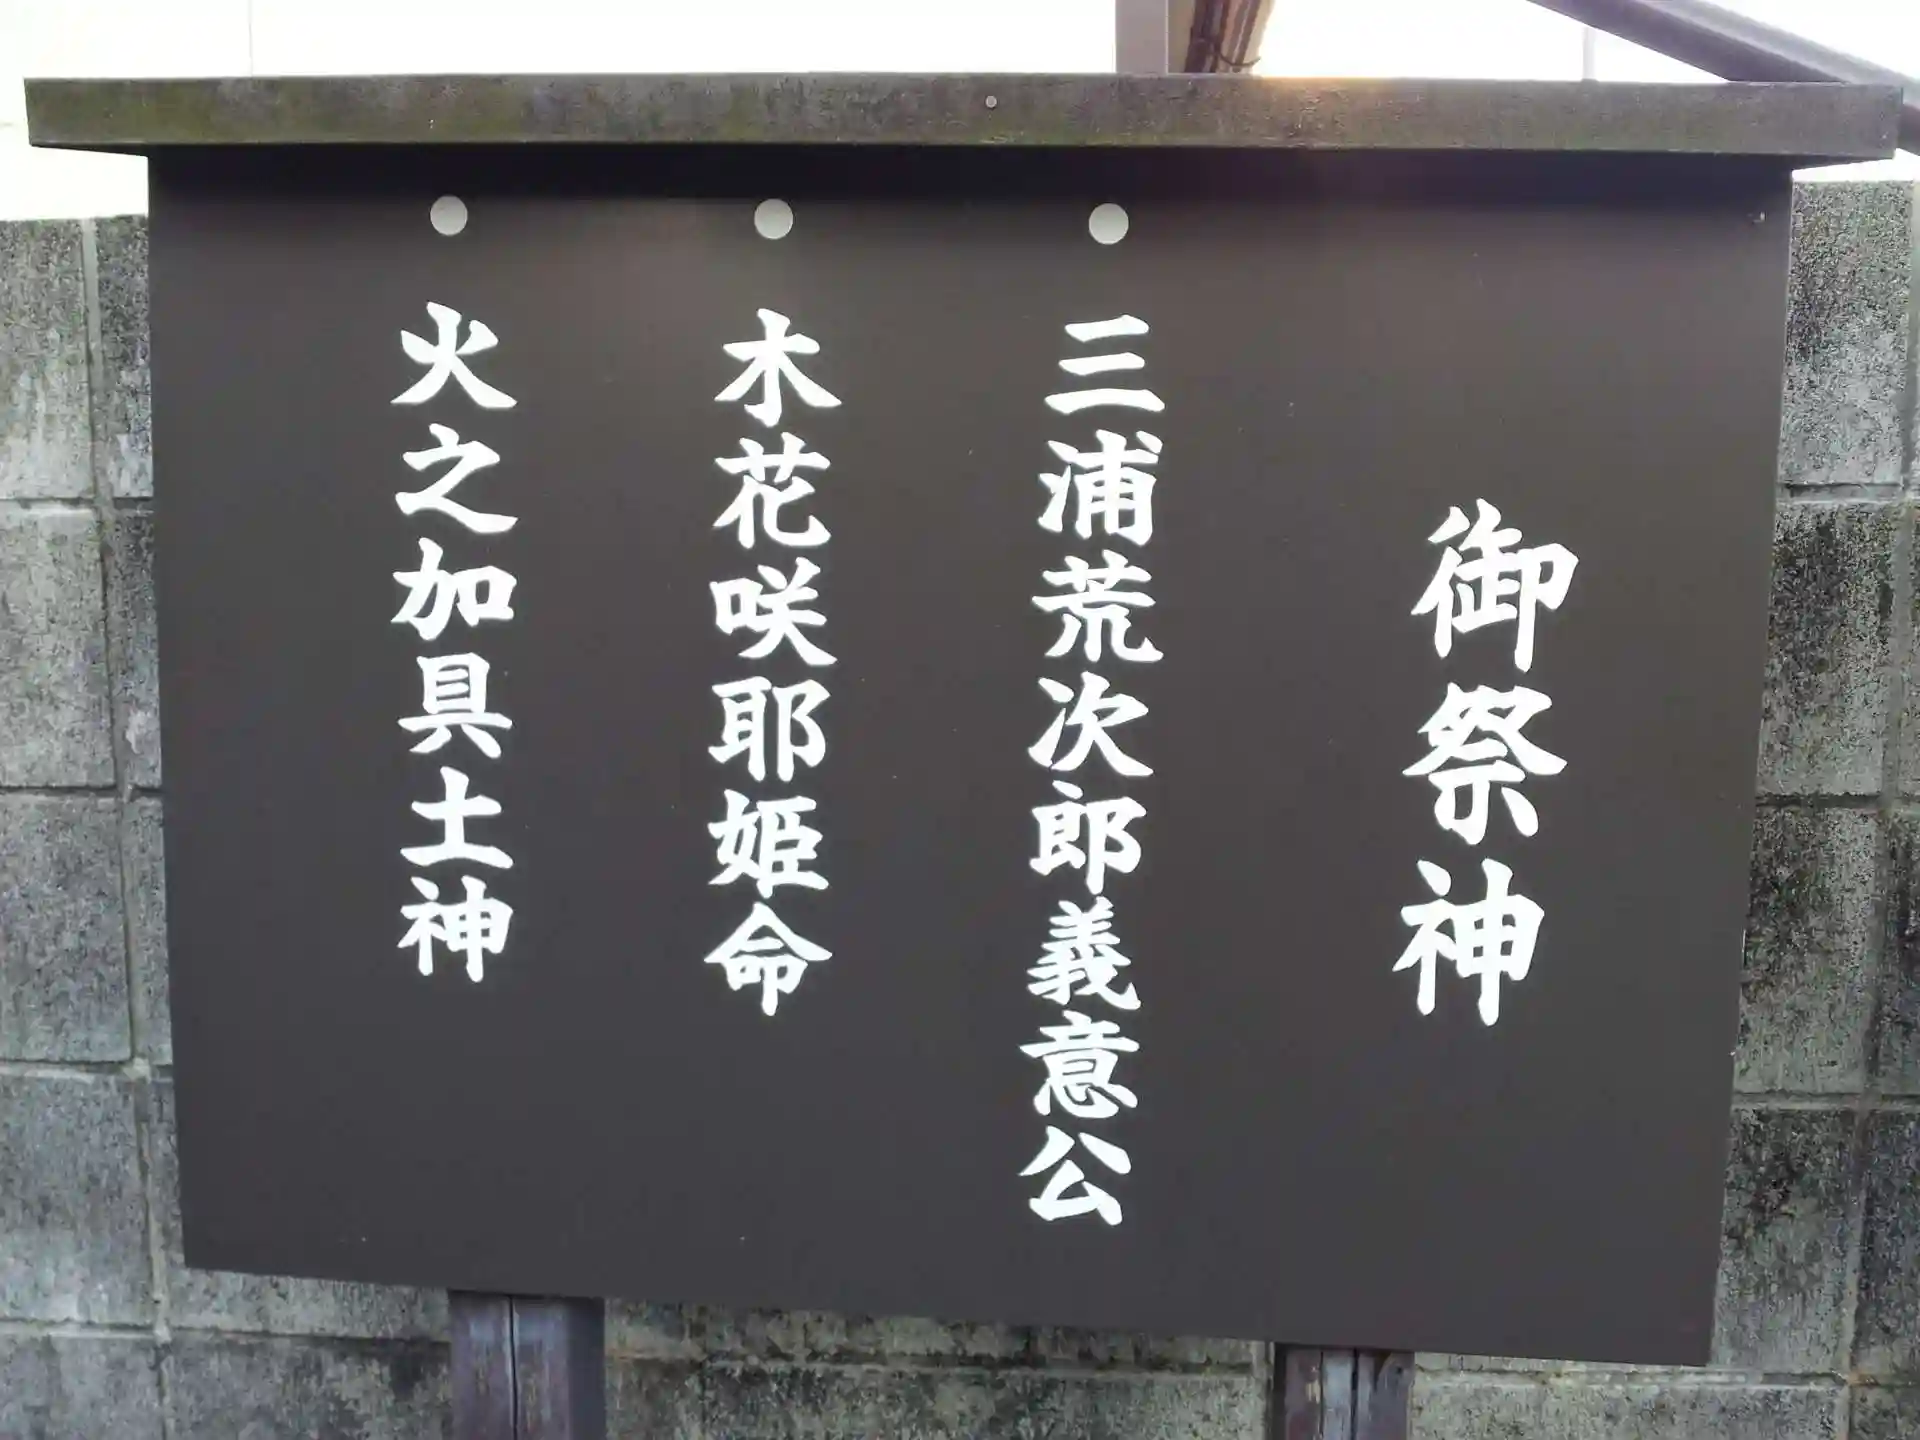 御祭神
三浦荒次郎義意公
木花咲耶姫命
火之加具土神